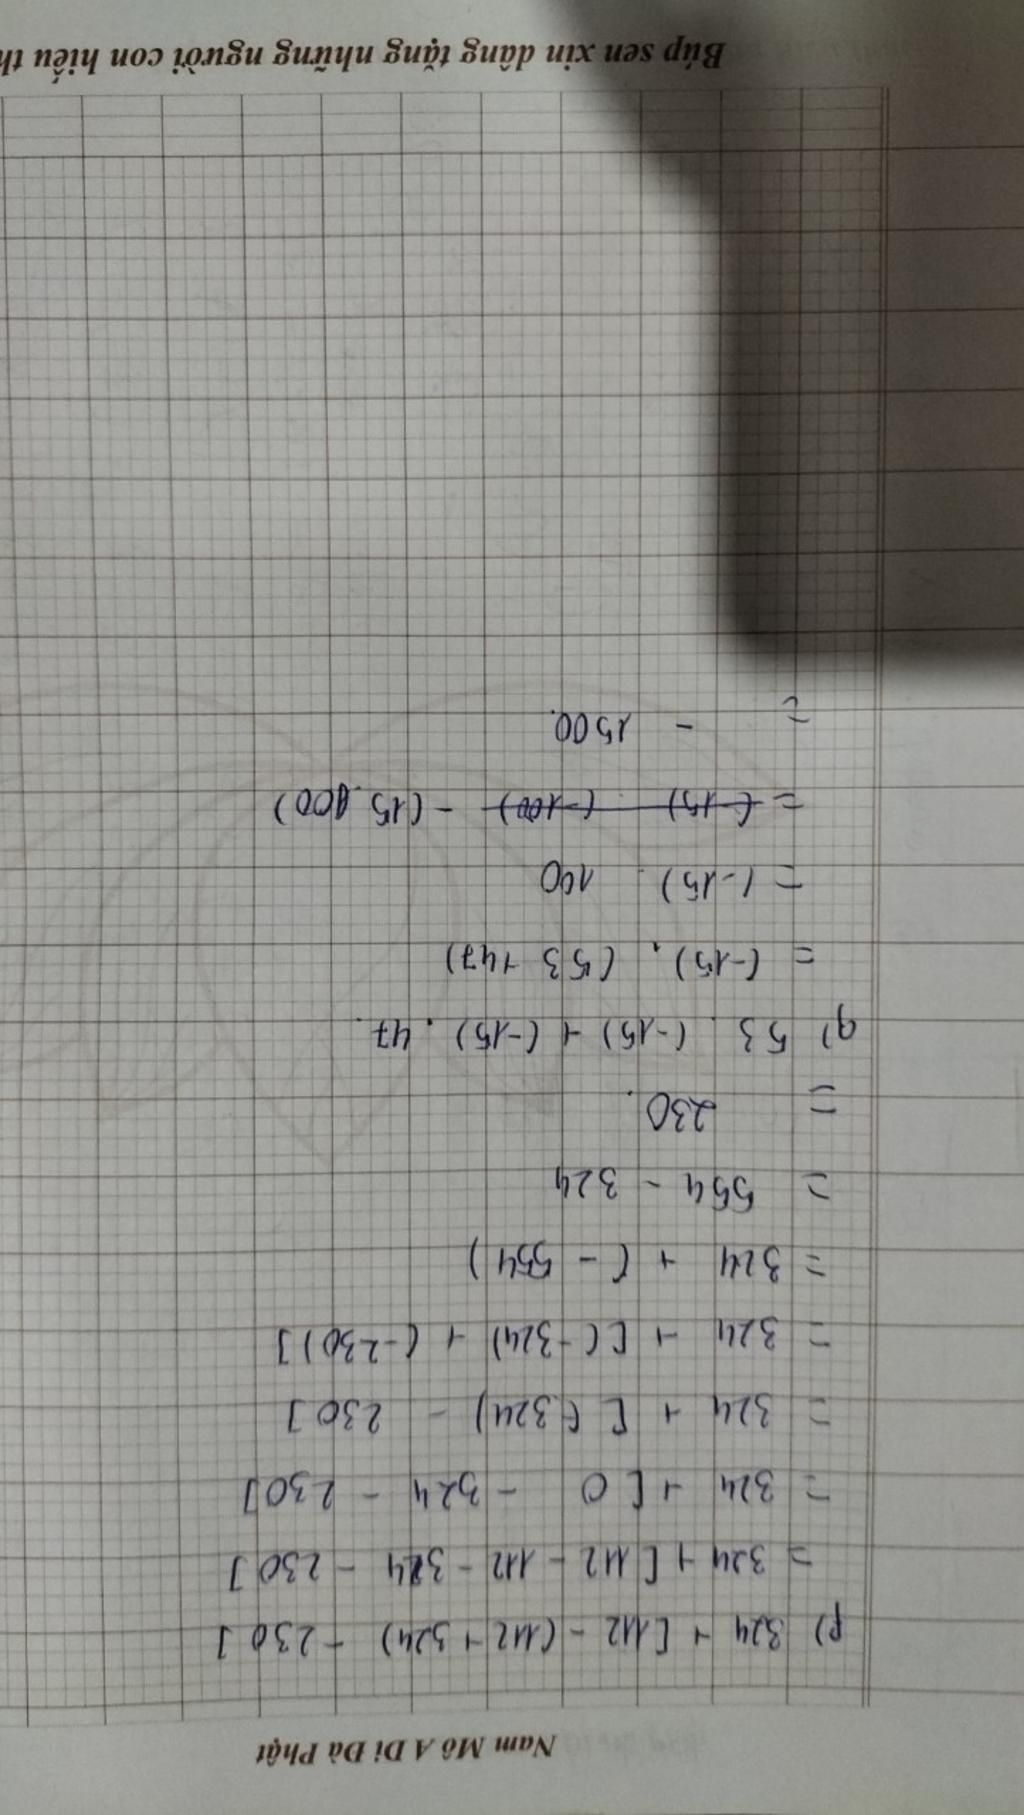 Nam Mô A Di Đà Phật
p) 324 + [112 - (112 + 324) - 230]
= 324 + [112 - 112 - 324 - 230]
= 324 + [0 - 324 - 230]
= 324 + [(-324) - 230]
= 324 + [(-324) + (-230)]
= 324 + (-554)
= 554 - 324
= 230.
q) 53 . (-15) + (-15) . 47.
= (-15) . (53 + 47)
= (-15) . 100
= (-15) . (-100) - (15.100)
= - 1500.
=
Búp sen xin dâng tặng những người con hiếu th